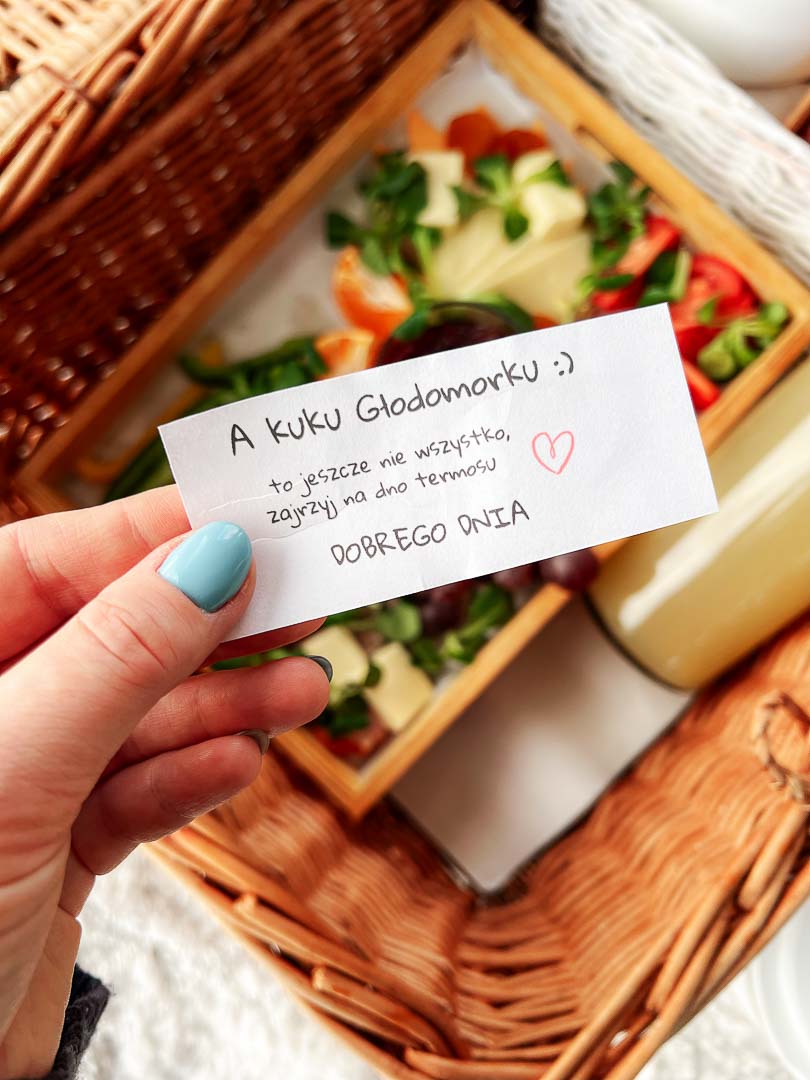 A kuku Głodomorku :)
to jeszcze nie wszystko,
zajrzyj na dno termosu
DOBREGO DNIA